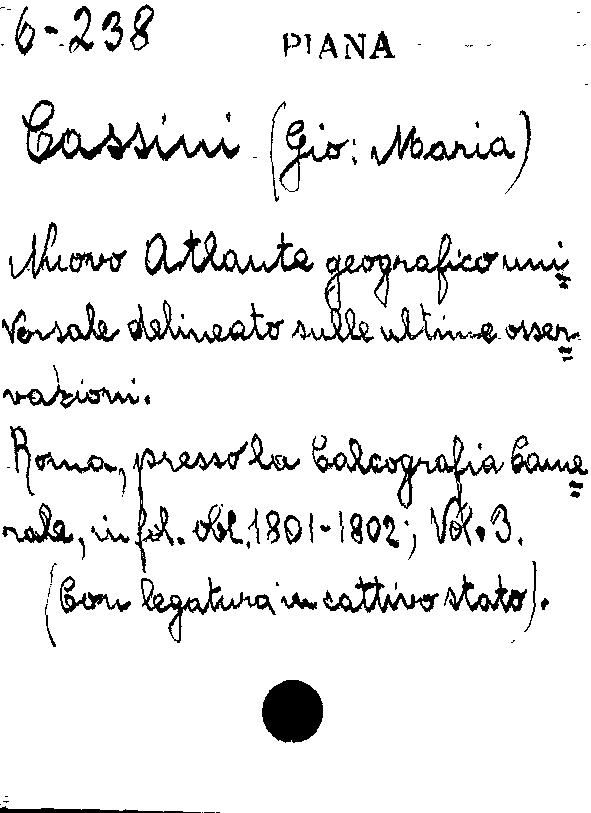 6-238 PIANA
Cassini (Gio: Maria)
Nuovo Atlante geografico uni=
versale delineato sulle ultime osser=
vazioni.
Roma, presso la Calcografia Came=
rale, in fol. obl. 1801-1802; Vol. 3.
(Con legatura in cattivo stato).